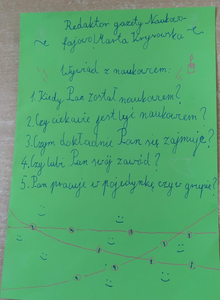 Redaktor gazety Naukowa-
fajowo Marta Kryrowska
Wywiad z naukowcem:
1. Kiedy Pan został naukowcem?
2. Czy ciekawie jest być naukowcem?
3. Czym dokładnie Pan się zajmuje?
4. Czy lubi Pan swój zawód?
5. Pan pracuje w pojedynkę czy w grupie?